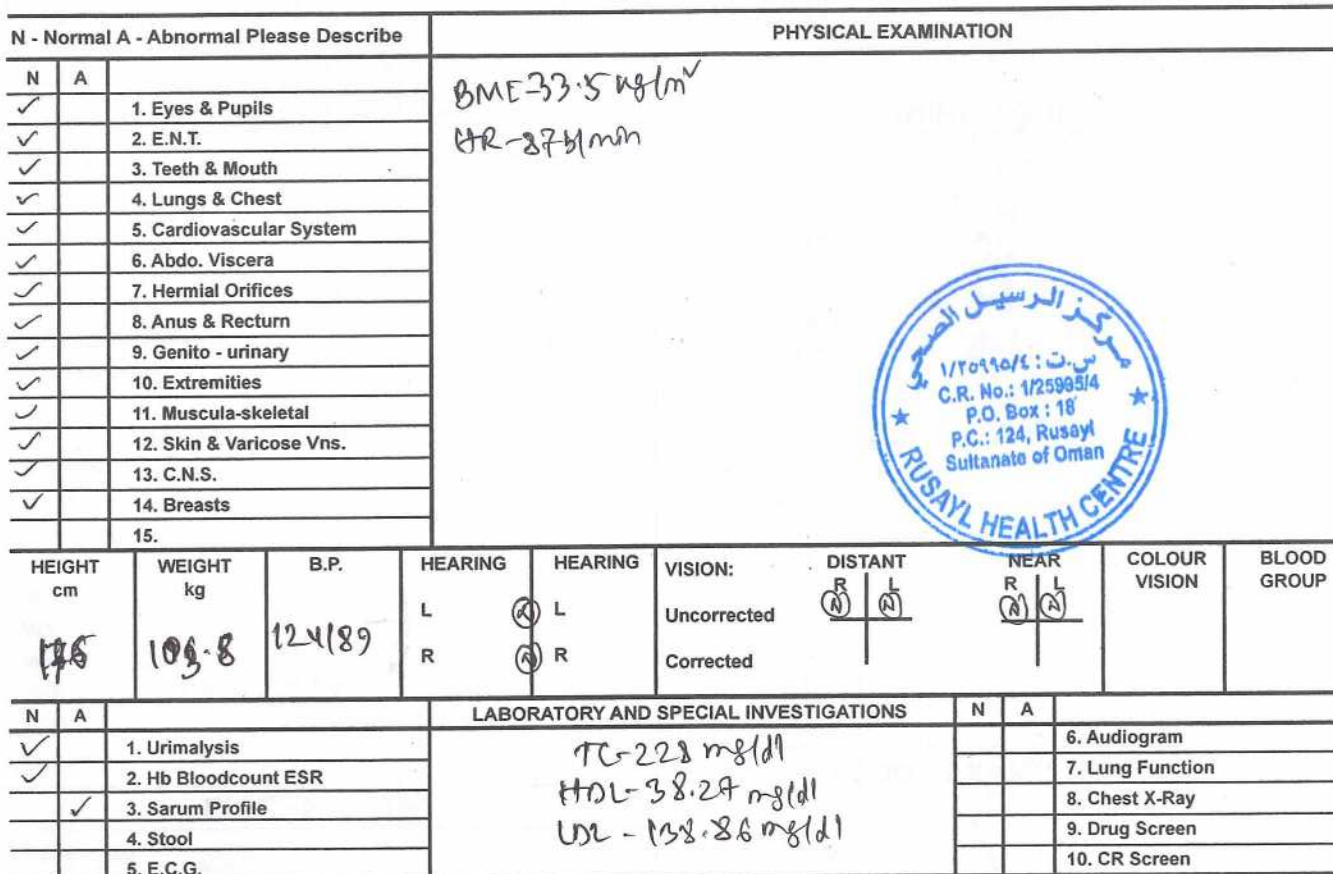 N - Normal A - Abnormal Please Describe
PHYSICAL EXAMINATION
N A
✓ 1. Eyes & Pupils
✓ 2. E.N.T.
✓ 3. Teeth & Mouth
✓ 4. Lungs & Chest
✓ 5. Cardiovascular System
✓ 6. Abdo. Viscera
✓ 7. Hermial Orifices
✓ 8. Anus & Recturn
✓ 9. Genito - urinary
✓ 10. Extremities
✓ 11. Muscula-skeletal
✓ 12. Skin & Varicose Vns.
✓ 13. C.N.S.
✓ 14. Breasts
15.
33.5 kg/m²
HR-87b/min
مركز الرسيل الصحي
س.ت : ١/٢٥٩٩٥/٤
C.R. No.: 1/25995/4
P.O. Box : 18
P.C.: 124, Rusayl
Sultanate of Oman
RUSAYL HEALTH CENTRE
HEIGHT cm
WEIGHT kg
B.P.
124/89
HEARING
L N
R N
HEARING
L
R
VISION:
DISTANT
NEAR
R L R L
Uncorrected N N N N
Corrected
COLOUR VISION
BLOOD GROUP
N A
LABORATORY AND SPECIAL INVESTIGATIONS
N A
✓ 1. Urimalysis
✓ 2. Hb Bloodcount ESR
✓ 3. Sarum Profile
4. Stool
5. E.C.G.
TC-228 mg/dl
HDL-38.27 mg/dl
LDL - 138.86 mg/dl
6. Audiogram
7. Lung Function
8. Chest X-Ray
9. Drug Screen
10. CR Screen